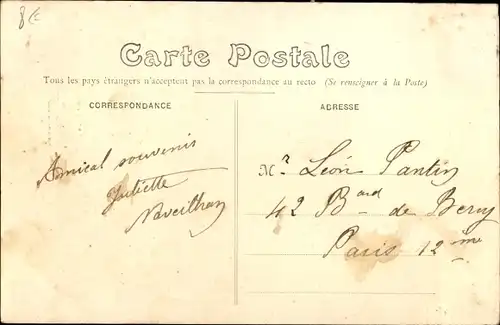 8€
Carte Postale
Tous les pays étrangers n'acceptent pas la correspondance au recto (Se renseigner à la Poste)
CORRESPONDANCE
ADRESSE
Amical souvenir
Juliette
Mr Léon Pantin
42 Bard de Bercy
Paris 12ème